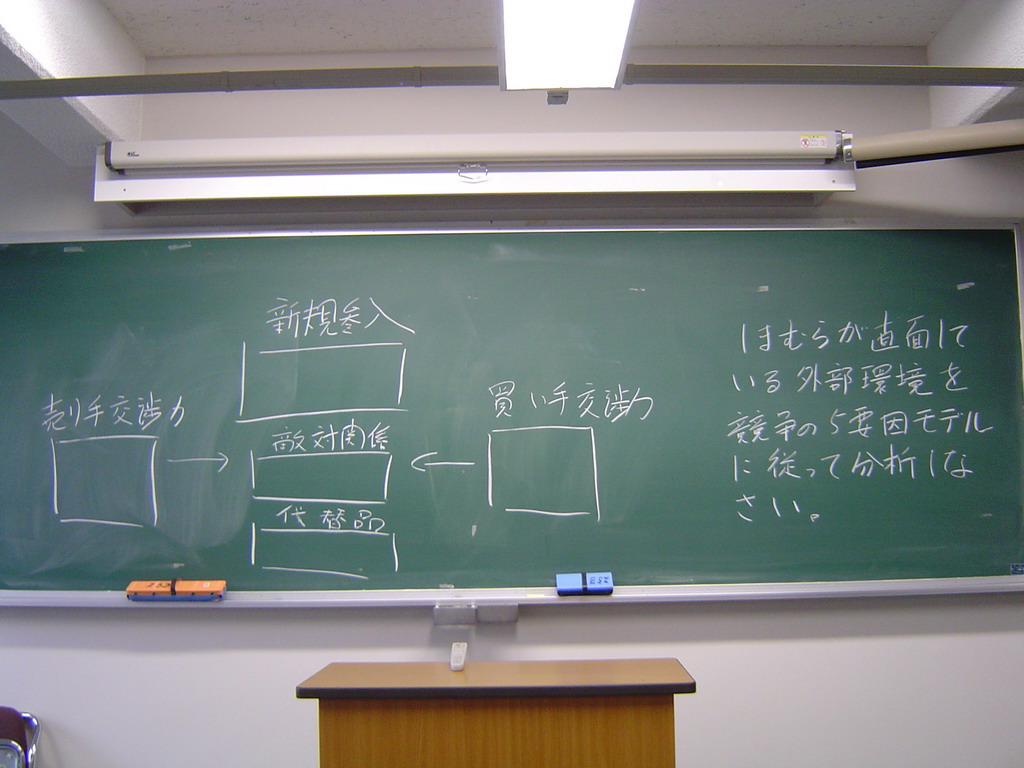 新規参入
売り手交渉力
買い手交渉力
敵対関係
代替品
はむらが直面して
いる外部環境を
競争の5要因モデル
に従って分析しな
さい。